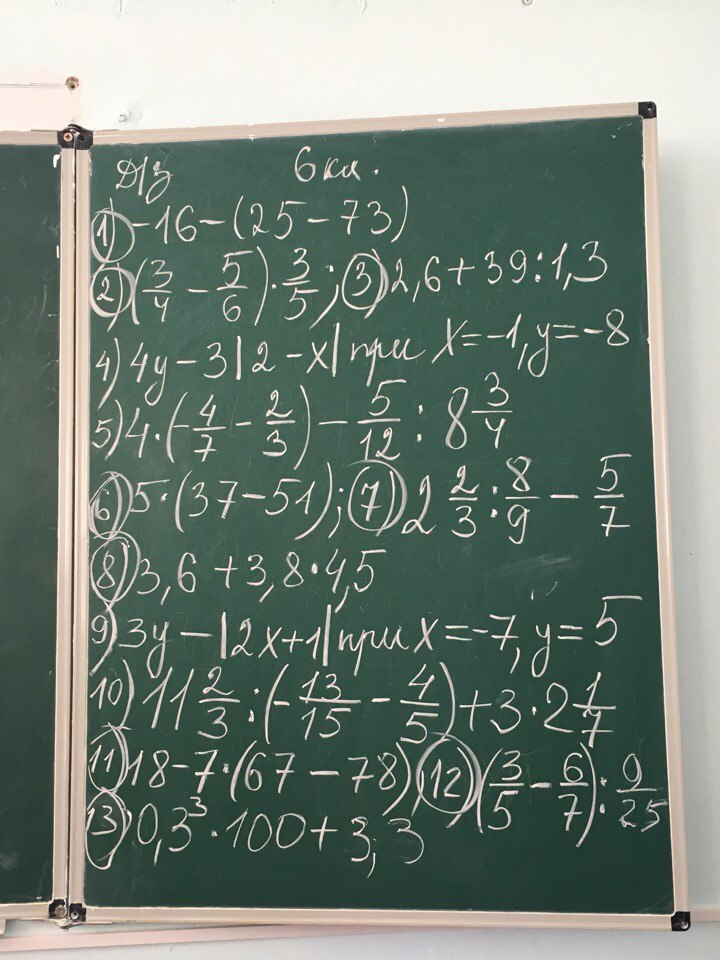 Д/з 6 кл.
1) -16-(25-73)
2) (3/4 - 5/6) · 3/5; 3) 2,6+39:1,3
4) 4y-3|2-x| при x=-1, y=-8
5) 4·(-4/7 - 2/3) - 5/12 : 8 3/4
6) 5·(37-51); 7) 2 2/3 : 8/9 - 5/7
8) 3,6+3,8·4,5
9) 3y-|2x+1| при x=-7, y=5
10) 11 2/3 : (-13/15 - 4/5) + 3·2 1/7
11) 18-7·(67-78), 12) (3/5 - 6/7) : 9/25
13) 0,3³·100+3,3